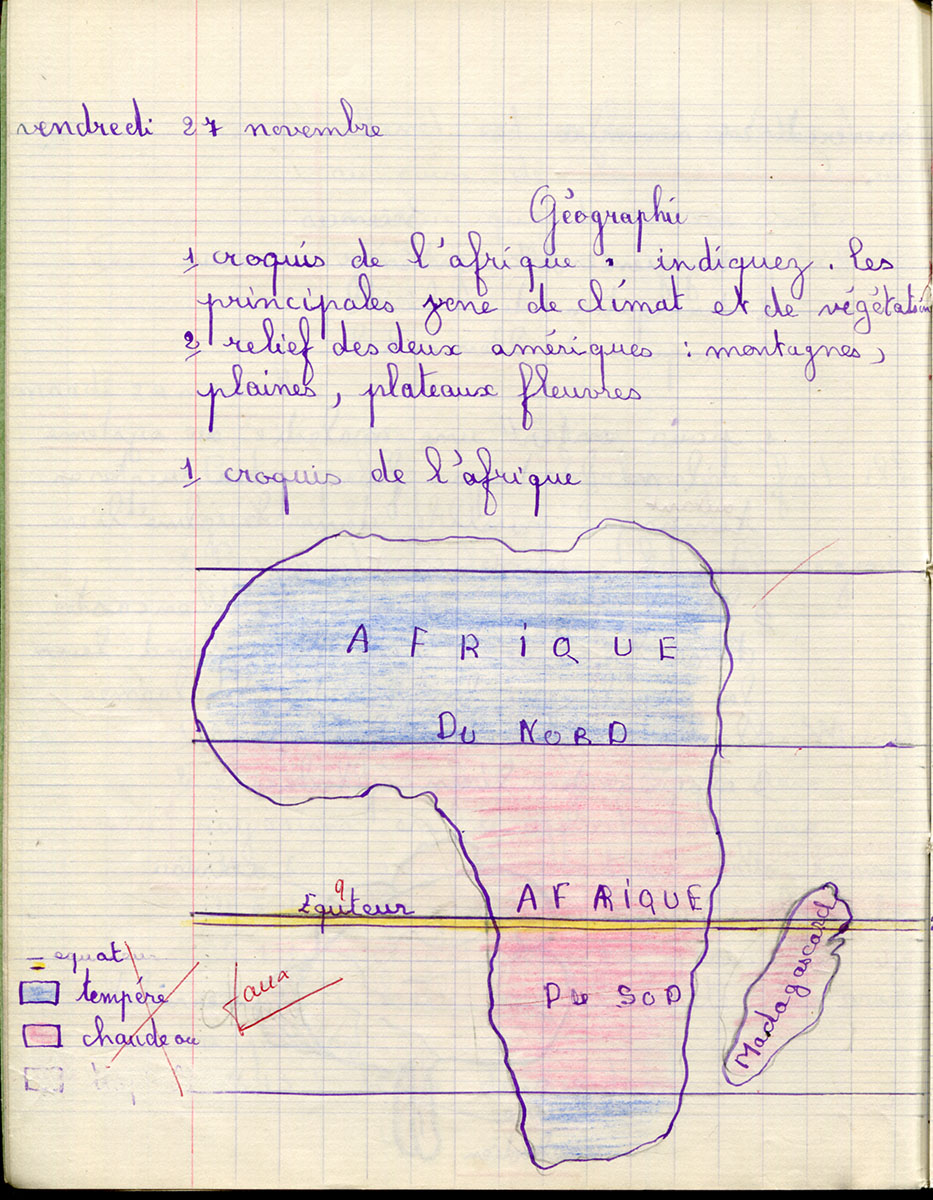 vendredi 27 novembre
Géographie
1 croquis de l'afrique . indiquez . les
principales zone de climat et de végétation
2 relief des deux amériques : montagnes,
plaines, plateaux fleuvres
1 croquis de l'afrique
AFRIQUE
DU NORD
a
Equiteur
AFRIQUE
DU SUD
Madagascard
equateur
tempéré
chaude ou
faux